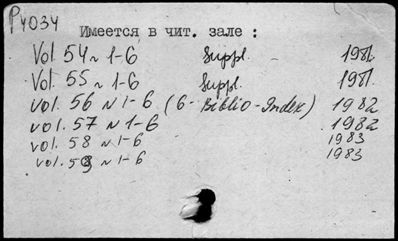 P4034
Имеется в чит. зале :
Vol. 54 N 1-6 Suppl. 1981.
Vol. 55 N 1-6 Suppl. 1981.
vol. 56 N 1-6 (6-Biblio-Index) 1982
vol. 57 N 1-6 1982
vol. 58 N 1-6 1983
vol. 59 N 1-6 1983